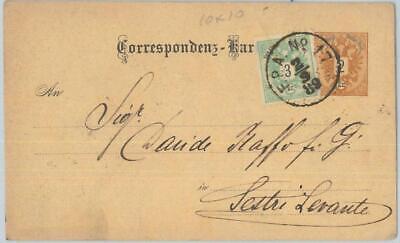 10x10
Correspondenz-Kar
3
2
F.P.A. No 17
An
Sigr
Davide Raffo fu G.
in
Sestri Levante